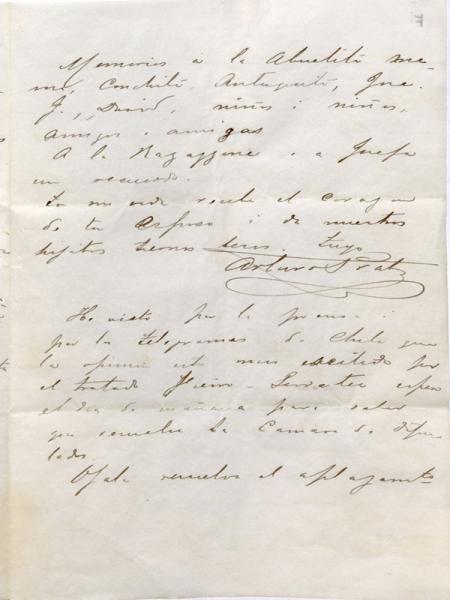 Memorias á la Abuelita, me-
mé, Conchita,
J., David, niños i niñas,
amigos i amigas
A la i a Josefa
un recuerdo.
recibe el corazon
de tu esposo i de nuestros
hijitos tiernos besos. Tuyo
Arturo Prat
He visto por la prensa i
por los telegramas de Chile que
la opinion está mui escitada por
el tratado Fierro-Sarratea espero
el dia de mañana para saber
que resuelve la Camara de dipu
tados.
Ojala resuelva el aplazamto